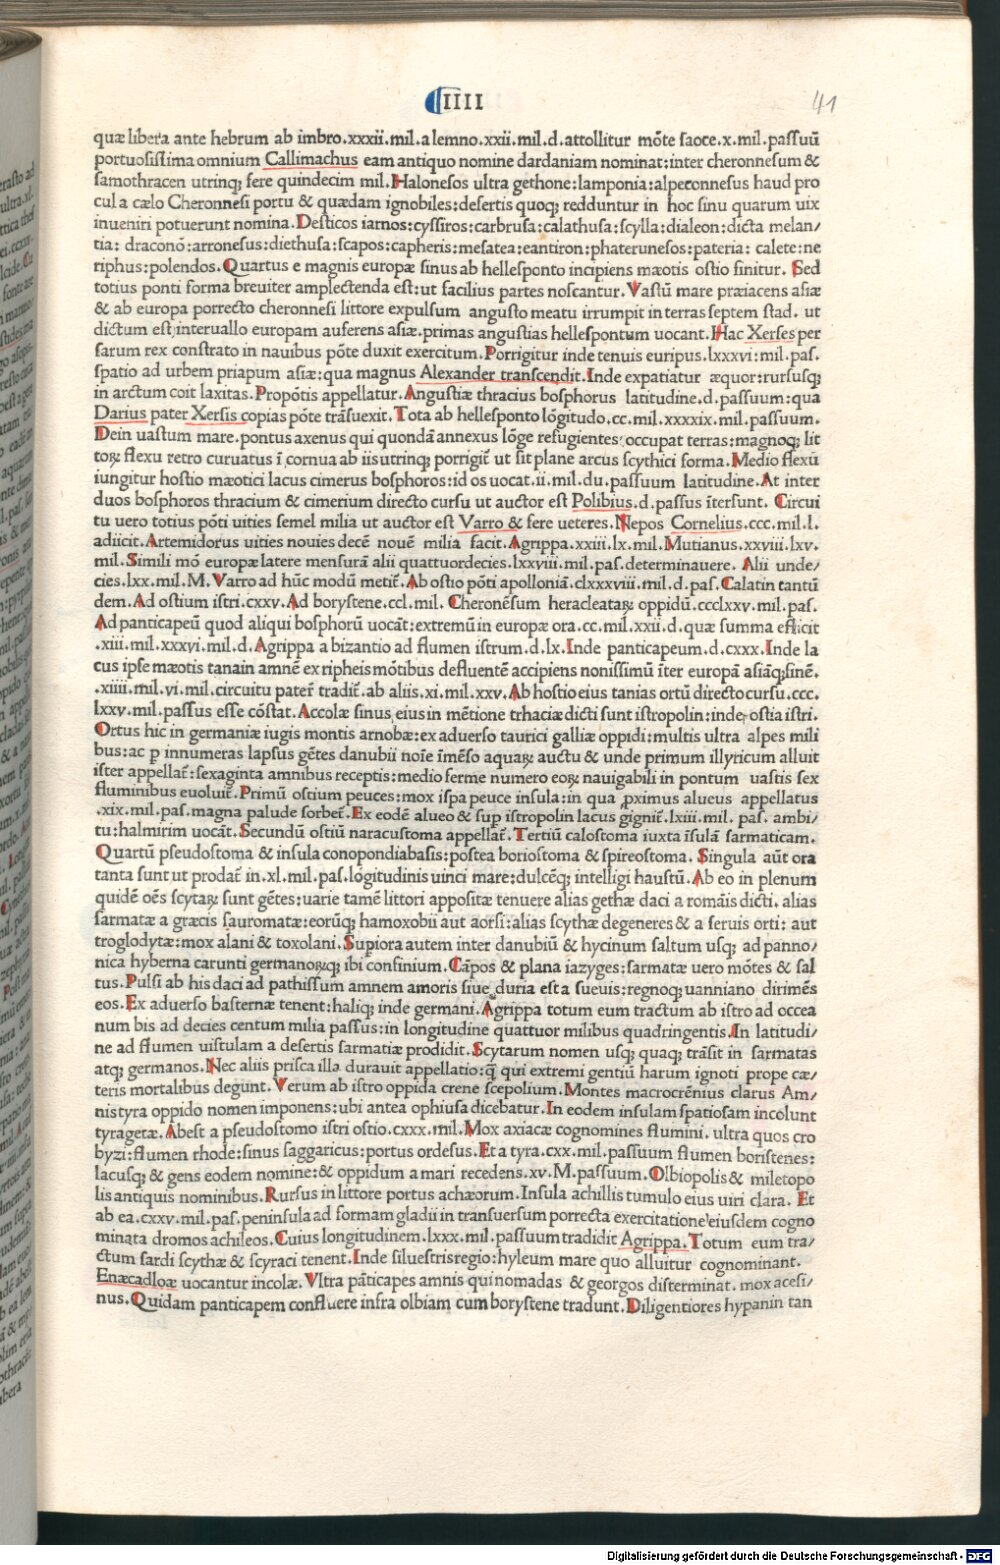 IIII
41
quæ libera ante hebrum ab imbro.xxxii.mil.a lemno.xxii.mil.d.attollitur mõte saoce.x.mil.passuũ
portuosissima omnium Callimachus eam antiquo nomine dardaniam nominat:inter cheronnesum &
samothracen utrinq; fere quindecim mil.Halonesos ultra gethone:lamponia:alpeconnesus haud pro
cul a cælo Cheronnesi portu & quædam ignobiles:desertis quoq; redduntur in hoc sinu quarum uix
inueniri potuerunt nomina.Desticos iarnos:cyssiros:carbrusa:calathusa:scylla:dialeon:dicta melan/
tia: draconõ:arronesus:diethusa:scapos:capheris:mesatea:eantiron:phaterunesos:pateria: calete:ne
riphus:polendos.Quartus e magnis europæ sinus ab hellesponto incipiens mæotis ostio finitur. Sed
totius ponti forma breuiter amplectenda est:ut facilius partes noscantur.Vastũ mare præiacens asiæ
& ab europa porrecto cheronnesi littore expulsum angusto meatu irrumpit in terras septem stad. ut
dictum est interuallo europam auferens asiæ.primas angustias hellespontum uocant.Hac Xerses per
sarum rex constrato in nauibus põte duxit exercitum.Porrigitur inde tenuis euripus.lxxxvi:mil.pas.
spatio ad urbem priapum asiæ:qua magnus Alexander transcendit.Inde expatiatur æquor:rursusq;
in arctum coit laxitas.Propõtis appellatur.Angustiæ thracius bosphorus latitudine.d.passuum:qua
Darius pater Xersis copias põte trãsuexit.Tota ab hellesponto lõgitudo.cc.mil.xxxxix.mil.passuum.
Dein uastum mare.pontus axenus qui quondã annexus lõge refugientes occupat terras:magnoq; lit
toꝝ flexu retro curuatus ĩ cornua ab iis utrinq; porrigit̃ ut sit plane arcus scythici forma.Medio flexũ
iungitur hostio mæotici lacus cimerus bosphoros:id os uocat.ii.mil.du.passuum latitudine.At inter
duos bosphoros thracium & cimerium directo cursu ut auctor est Polibius.d.passus ĩtersunt. Circui
tu uero totius põti uities semel milia ut auctor est Varro & fere ueteres.Nepos Cornelius.ccc.mil.l.
adiicit.Artemidorus uities nouies decẽ nouẽ milia facit.Agrippa.xxiii.lx.mil.Mutianus.xxviii.lxv.
mil.Simili mõ europæ latere mensurã alii quattuordecies.lxxviii.mil.pas.determinauere. Alii unde/
cies.lxx.mil.M.Varro ad hũc modũ metit̃.Ab ostio põti apolloniã.clxxxviii.mil.d.pas.Calatin tantũ
dem.Ad ostium istri.cxxv.Ad borystene.ccl.mil. Cheronẽsum heracleataꝝ oppidũ.ccclxxv.mil.pas.
Ad panticapeũ quod aliqui bosphorũ uocãt:extremũ in europæ ora.cc.mil.xxii.d.quæ summa efficit
.xiii.mil.xxxvi.mil.d.Agrippa a bizantio ad flumen istrum.d.lx.Inde panticapeum.d.cxxx.Inde la
cus ipse mæotis tanain amnẽ ex ripheis mõtibus defluentẽ accipiens nonissimũ ĩter europã asiãq;finẽ.
.xiiii.mil.vi.mil.circuitu patet̃ tradit̃.ab aliis.xi.mil.xxv.Ab hostio eius tanias ortũ directo cursu.ccc.
lxxv.mil.passus esse cõstat.Accolæ sinus eius in mẽtione trhaciæ dicti sunt istropolin:inde ostia istri.
Ortus hic in germaniæ iugis montis arnobæ:ex aduerso taurici galliæ oppidi:multis ultra alpes mili
bus:ac p innumeras lapsus gẽtes danubii noĩe ĩmẽso aquaꝝ auctu & unde primum illyricum alluit
ister appellat̃:sexaginta amnibus receptis:medio ferme numero eoꝝ nauigabili in pontum uastis sex
fluminibus euoluit̃.Primũ ostium peuces:mox ispa peuce insula:in qua ꝓximus alueus appellatus
.xix.mil.pas.magna palude sorbet̃.Ex eodẽ alueo & sup istropolin lacus gignit̃.lxiii.mil. pas. ambi/
tu:halmirim uocãt.Secundũ ostiũ naracustoma appellat̃.Tertiũ calostoma iuxta ĩsulã sarmaticam.
Quartũ pseudostoma & insula conopondiabasis:postea boriostoma & spireostoma. Singula aũt ora
tanta sunt ut prodat̃ in.xl.mil.pas.lõgitudinis uinci mare:dulcẽq; intelligi haustũ.Ab eo in plenum
quidẽ oẽs scytaꝝ sunt gẽtes:uarie tamẽ littori appositæ tenuere alias gethæ daci a romãis dicti. alias
sarmatæ a græcis sauromatæ:eorũq; hamoxobii aut aorsi:alias scythæ degeneres & a seruis orti: aut
troglodytæ:mox alani & toxolani.Supiora autem inter danubiũ & hycinum saltum usq; ad panno/
nica hyberna carunti germanoꝝq; ibi confinium.Cãpos & plana iazyges:sarmatæ uero mõtes & sal
tus.Pulsi ab his daci ad pathissum amnem amoris siue duria est a sueuis:regnoq; uanniano dirimẽs
eos.Ex aduerso basternæ tenent:haliq; inde germani.Agrippa totum eum tractum ab istro ad occea
num bis ad decies centum milia passus:in longitudine quattuor milibus quadringentis.In latitudi/
ne ad flumen uistulam a desertis sarmatiæ prodidit.Scytarum nomen usq; quaq; trãsit in sarmatas
atq; germanos.Nec aliis prisca illa durauit appellatio:q̃ qui extremi gentiũ harum ignoti prope cæ/
teris mortalibus degunt.Verum ab istro oppida crene scepolium.Montes macrocrẽnius clarus Am/
nis tyra oppido nomen imponens:ubi antea ophiusa dicebatur.In eodem insulam spatiosam incolunt
tyragetæ.Abest a pseudostomo istri ostio.cxxx.mil.Mox axiacæ cognomines flumini. ultra quos cro
byzi:flumen rhode:sinus saggaricus:portus ordesus.Et a tyra.cxx.mil.passuum flumen boristenes:
lacusq; & gens eodem nomine:& oppidum a mari recedens.xv.M.passuum.Olbiopolis & miletopo
lis antiquis nominibus.Rursus in littore portus achæorum.Insula achillis tumulo eius uiri clara. Et
ab ea.cxxv.mil.pas.peninsula ad formam gladii in transuersum porrecta exercitatione eiusdem cogno
minata dromos achileos.Cuius longitudinem.lxxx.mil.passuum tradidit Agrippa.Totum eum tra/
ctum sardi scythæ & scyraci tenent.Inde siluestris regio:hyleum mare quo alluitur cognominant.
Enæcadloæ uocantur incolæ.Vltra pãticapes amnis qui nomadas & georgos disterminat. mox acesi/
nus.Quidam panticapem confluere infra olbiam cum borystene tradunt.Diligentiores hypanin tan
Digitalisierung gefördert durch die Deutsche Forschungsgemeinschaft - DFG